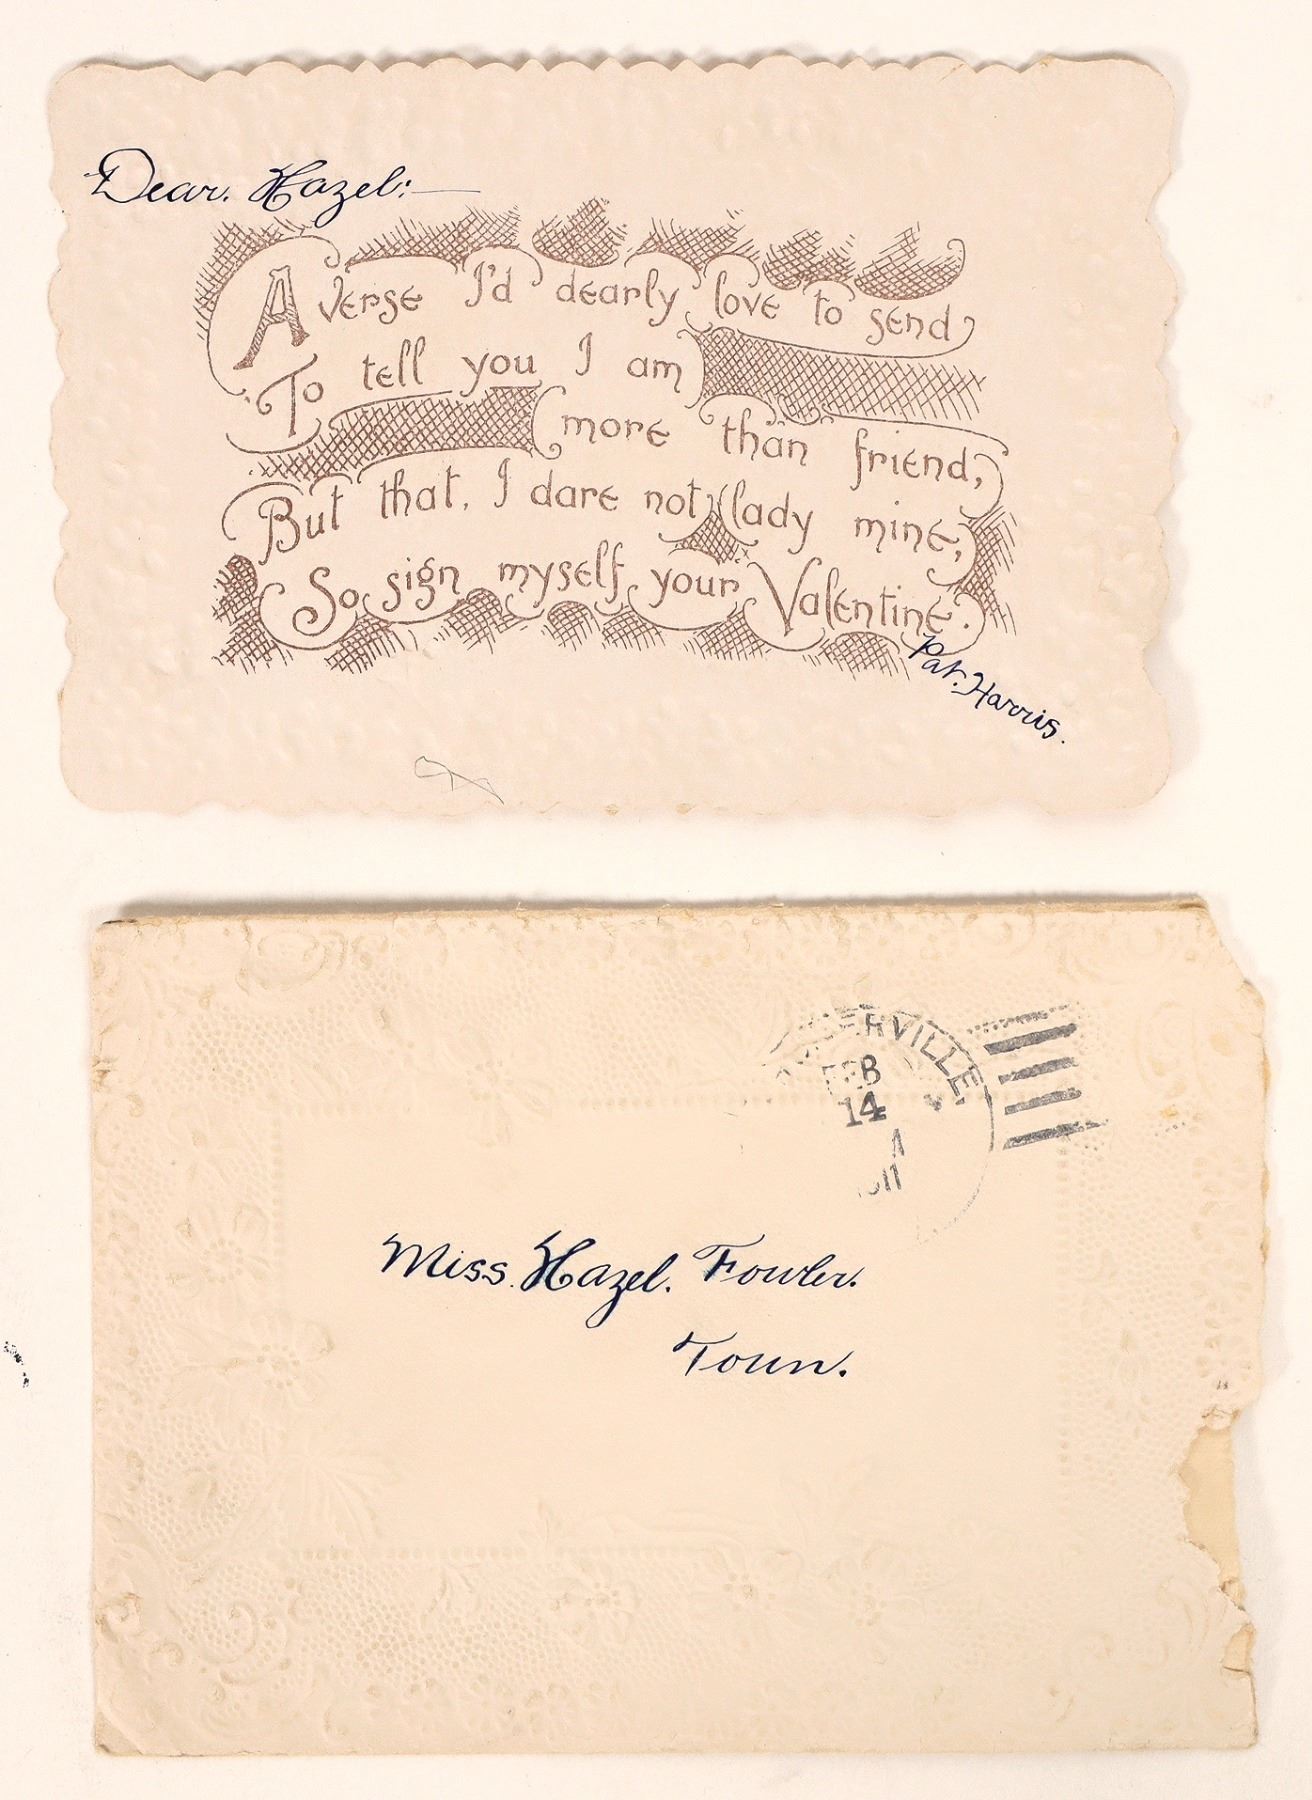 Dear. Hazel:—
A verse I'd dearly love to send
To tell you I am
more than friend,
But that, I dare not, lady mine,
So sign myself your Valentine.
Pat. Harris.
FEB
14
A
Miss. Hazel. Fowler.
Town.